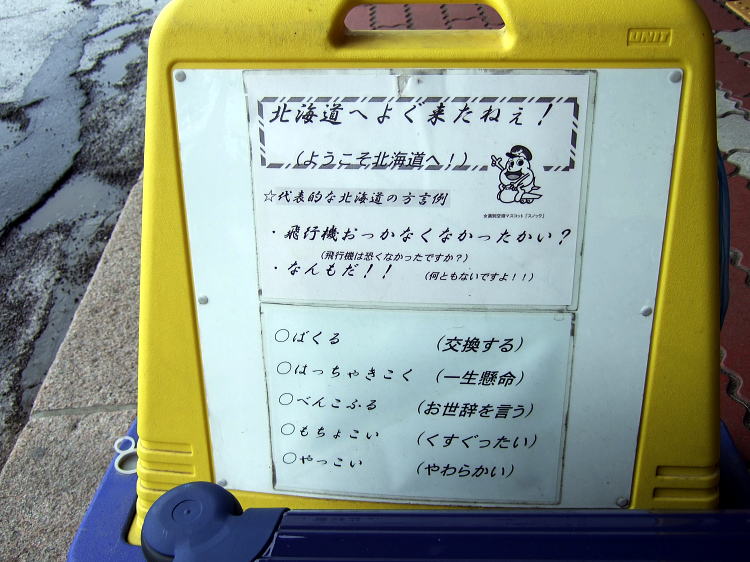 UNIT
北海道へよぐ来たねぇ！
（ようこそ北海道へ！）
☆代表的な北海道の方言例
☆函館空港マスコット「スノック」
・飛行機おっかなくなかったかい？
（飛行機は恐くなかったですか？）
・なんもだ！！ （何ともないですよ！！）
○ばくる （交換する）
○はっちゃきこく （一生懸命）
○べんこふる （お世辞を言う）
○もちょこい （くすぐったい）
○やっこい （やわらかい）